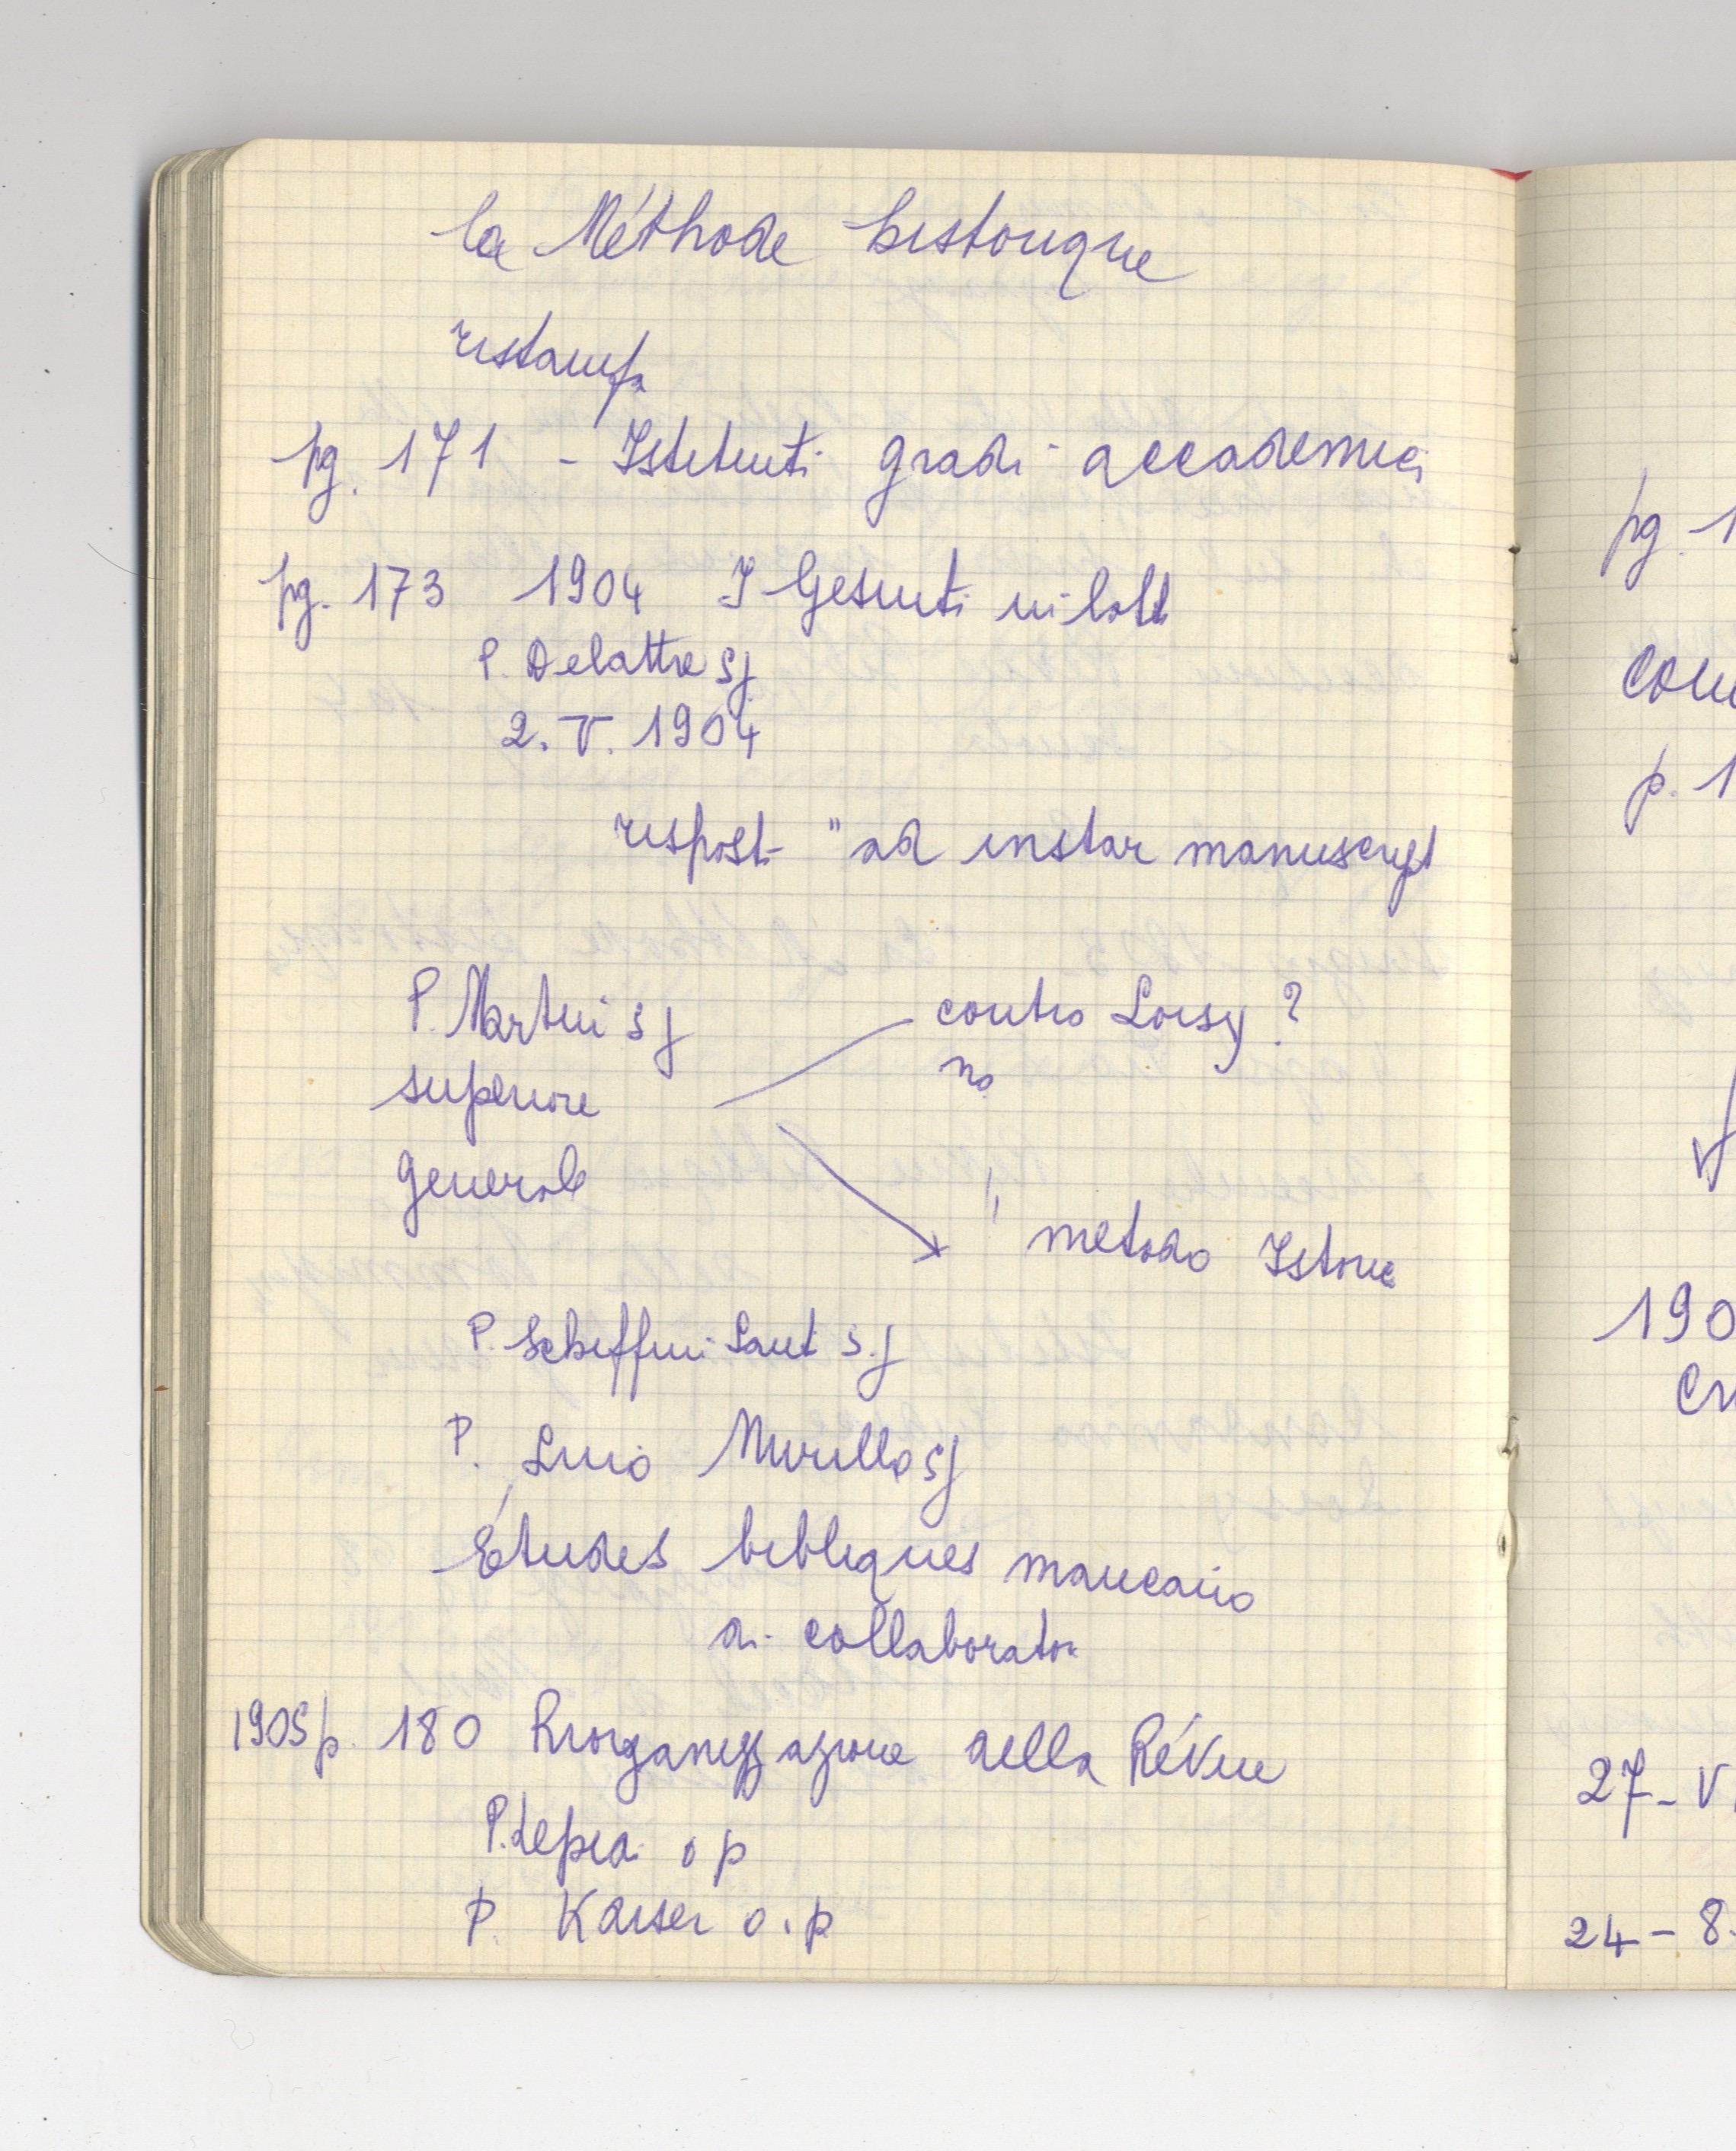 la Méthode historique
ristampa
pg. 171 - Istituti gradi accademici
pg. 173 1904 I Gesuiti in lott
P. Delattre sj
2. V. 1904
rispost "ad instar manuscript
P. Martin sj
contro Loisy?
superiore
no
generale
metodo Istoric
P. Schiffini Sant s.j
P. Lino Murillo sj
Études bibliques mancano
di collaborator
1905 p. 180 Riorganizzazione della Révue
P. Lepidi o p
P. Kaiser o.p
pg. 1
p. 1
190
27-V
24-8-